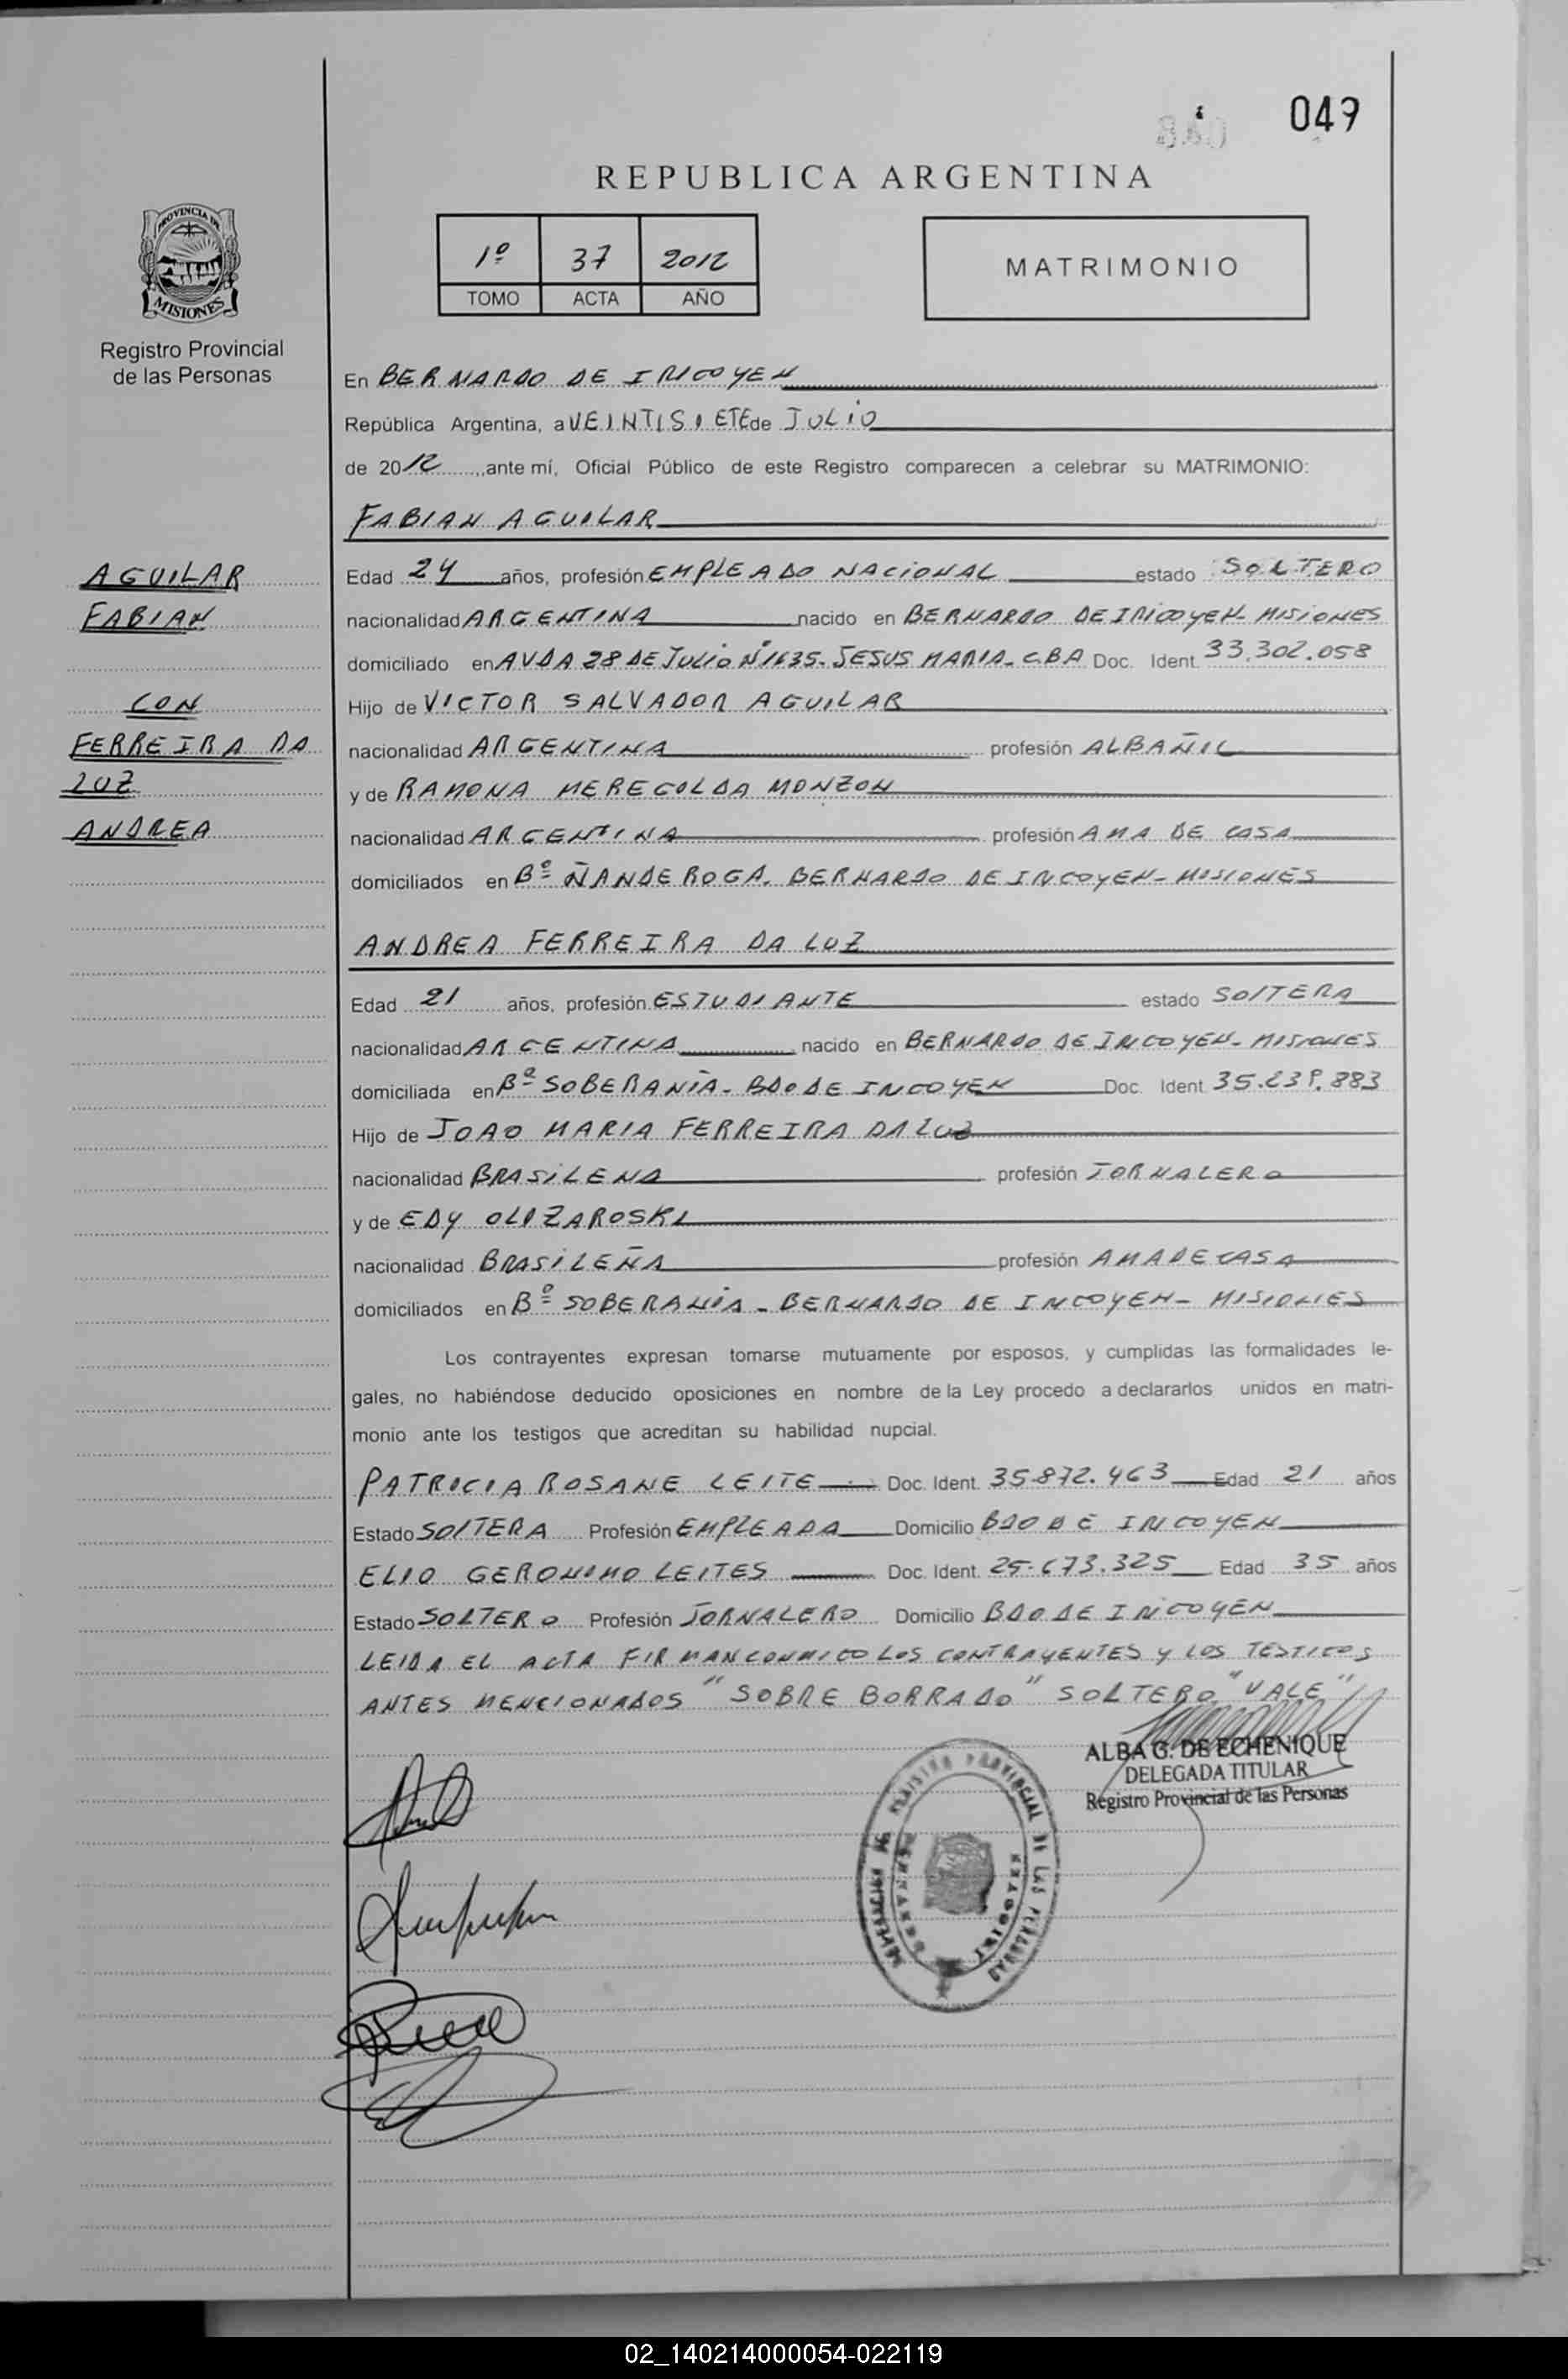 049
REPUBLICA ARGENTINA
PROVINCIA DE
MISIONES
Registro Provincial
de las Personas
1º 37 2012
TOMO ACTA AÑO
MATRIMONIO
En BERNARDO DE IRIGOYEN
República Argentina, a VEINTISIETE de JULIO
de 2012 ante mí, Oficial Público de este Registro comparecen a celebrar su MATRIMONIO:
FABIAN AGUILAR
AGUILAR
FABIAN
CON
FERREIRA DA
LUZ
ANDREA
Edad 24 años, profesión EMPLEADO NACIONAL estado SOLTERO
nacionalidad ARGENTINA nacido en BERNARDO DE IRIGOYEN - MISIONES
domiciliado en AVDA 28 DE JULIO Nº 1635 - JESUS MARIA - CBA Doc. Ident. 33.302.058
Hijo de VICTOR SALVADOR AGUILAR
nacionalidad ARGENTINA profesión ALBAÑIL
y de RAMONA MEREGOLDA MONZON
nacionalidad ARGENTINA profesión AMA DE CASA
domiciliados en Bº ÑANDE ROGA. BERNARDO DE IRIGOYEN - MISIONES
ANDREA FERREIRA DA LUZ
Edad 21 años, profesión ESTUDIANTE estado SOLTERA
nacionalidad ARGENTINA nacido en BERNARDO DE IRIGOYEN - MISIONES
domiciliada en Bº SOBERANIA - BDO DE IRIGOYEN Doc. Ident. 35.239.883
Hijo de JOAO MARIA FERREIRA DA LUZ
nacionalidad BRASILENA profesión JORNALERO
y de EDY OLIZAROSKI
nacionalidad BRASILEÑA profesión AMA DE CASA
domiciliados en Bº SOBERANIA - BERNARDO DE IRIGOYEN - MISIONES
Los contrayentes expresan tomarse mutuamente por esposos, y cumplidas las formalidades le-
gales, no habiéndose deducido oposiciones en nombre de la Ley procedo a declararlos unidos en matri-
monio ante los testigos que acreditan su habilidad nupcial.
PATRICIA ROSANE LEITE Doc. Ident. 35.872.463 Edad 21 años
Estado SOLTERA Profesión EMPLEADA Domicilio BDO DE IRIGOYEN
ELIO GERONIMO LEITES Doc. Ident. 25.673.325 Edad 35 años
Estado SOLTERO Profesión JORNALERO Domicilio BDO DE IRIGOYEN
LEIDA EL ACTA FIRMAN CONMIGO LOS CONTRAYENTES Y LOS TESTIGOS
ANTES MENCIONADOS "SOBRE BORRADO" SOLTERO "VALE"
ALBA G. DE ECHENIQUE
DELEGADA TITULAR
Registro Provincial de las Personas
REGISTRO PROVINCIAL DE LAS PERSONAS
BERNARDO
IRIGOYEN
02_140214000054-022119